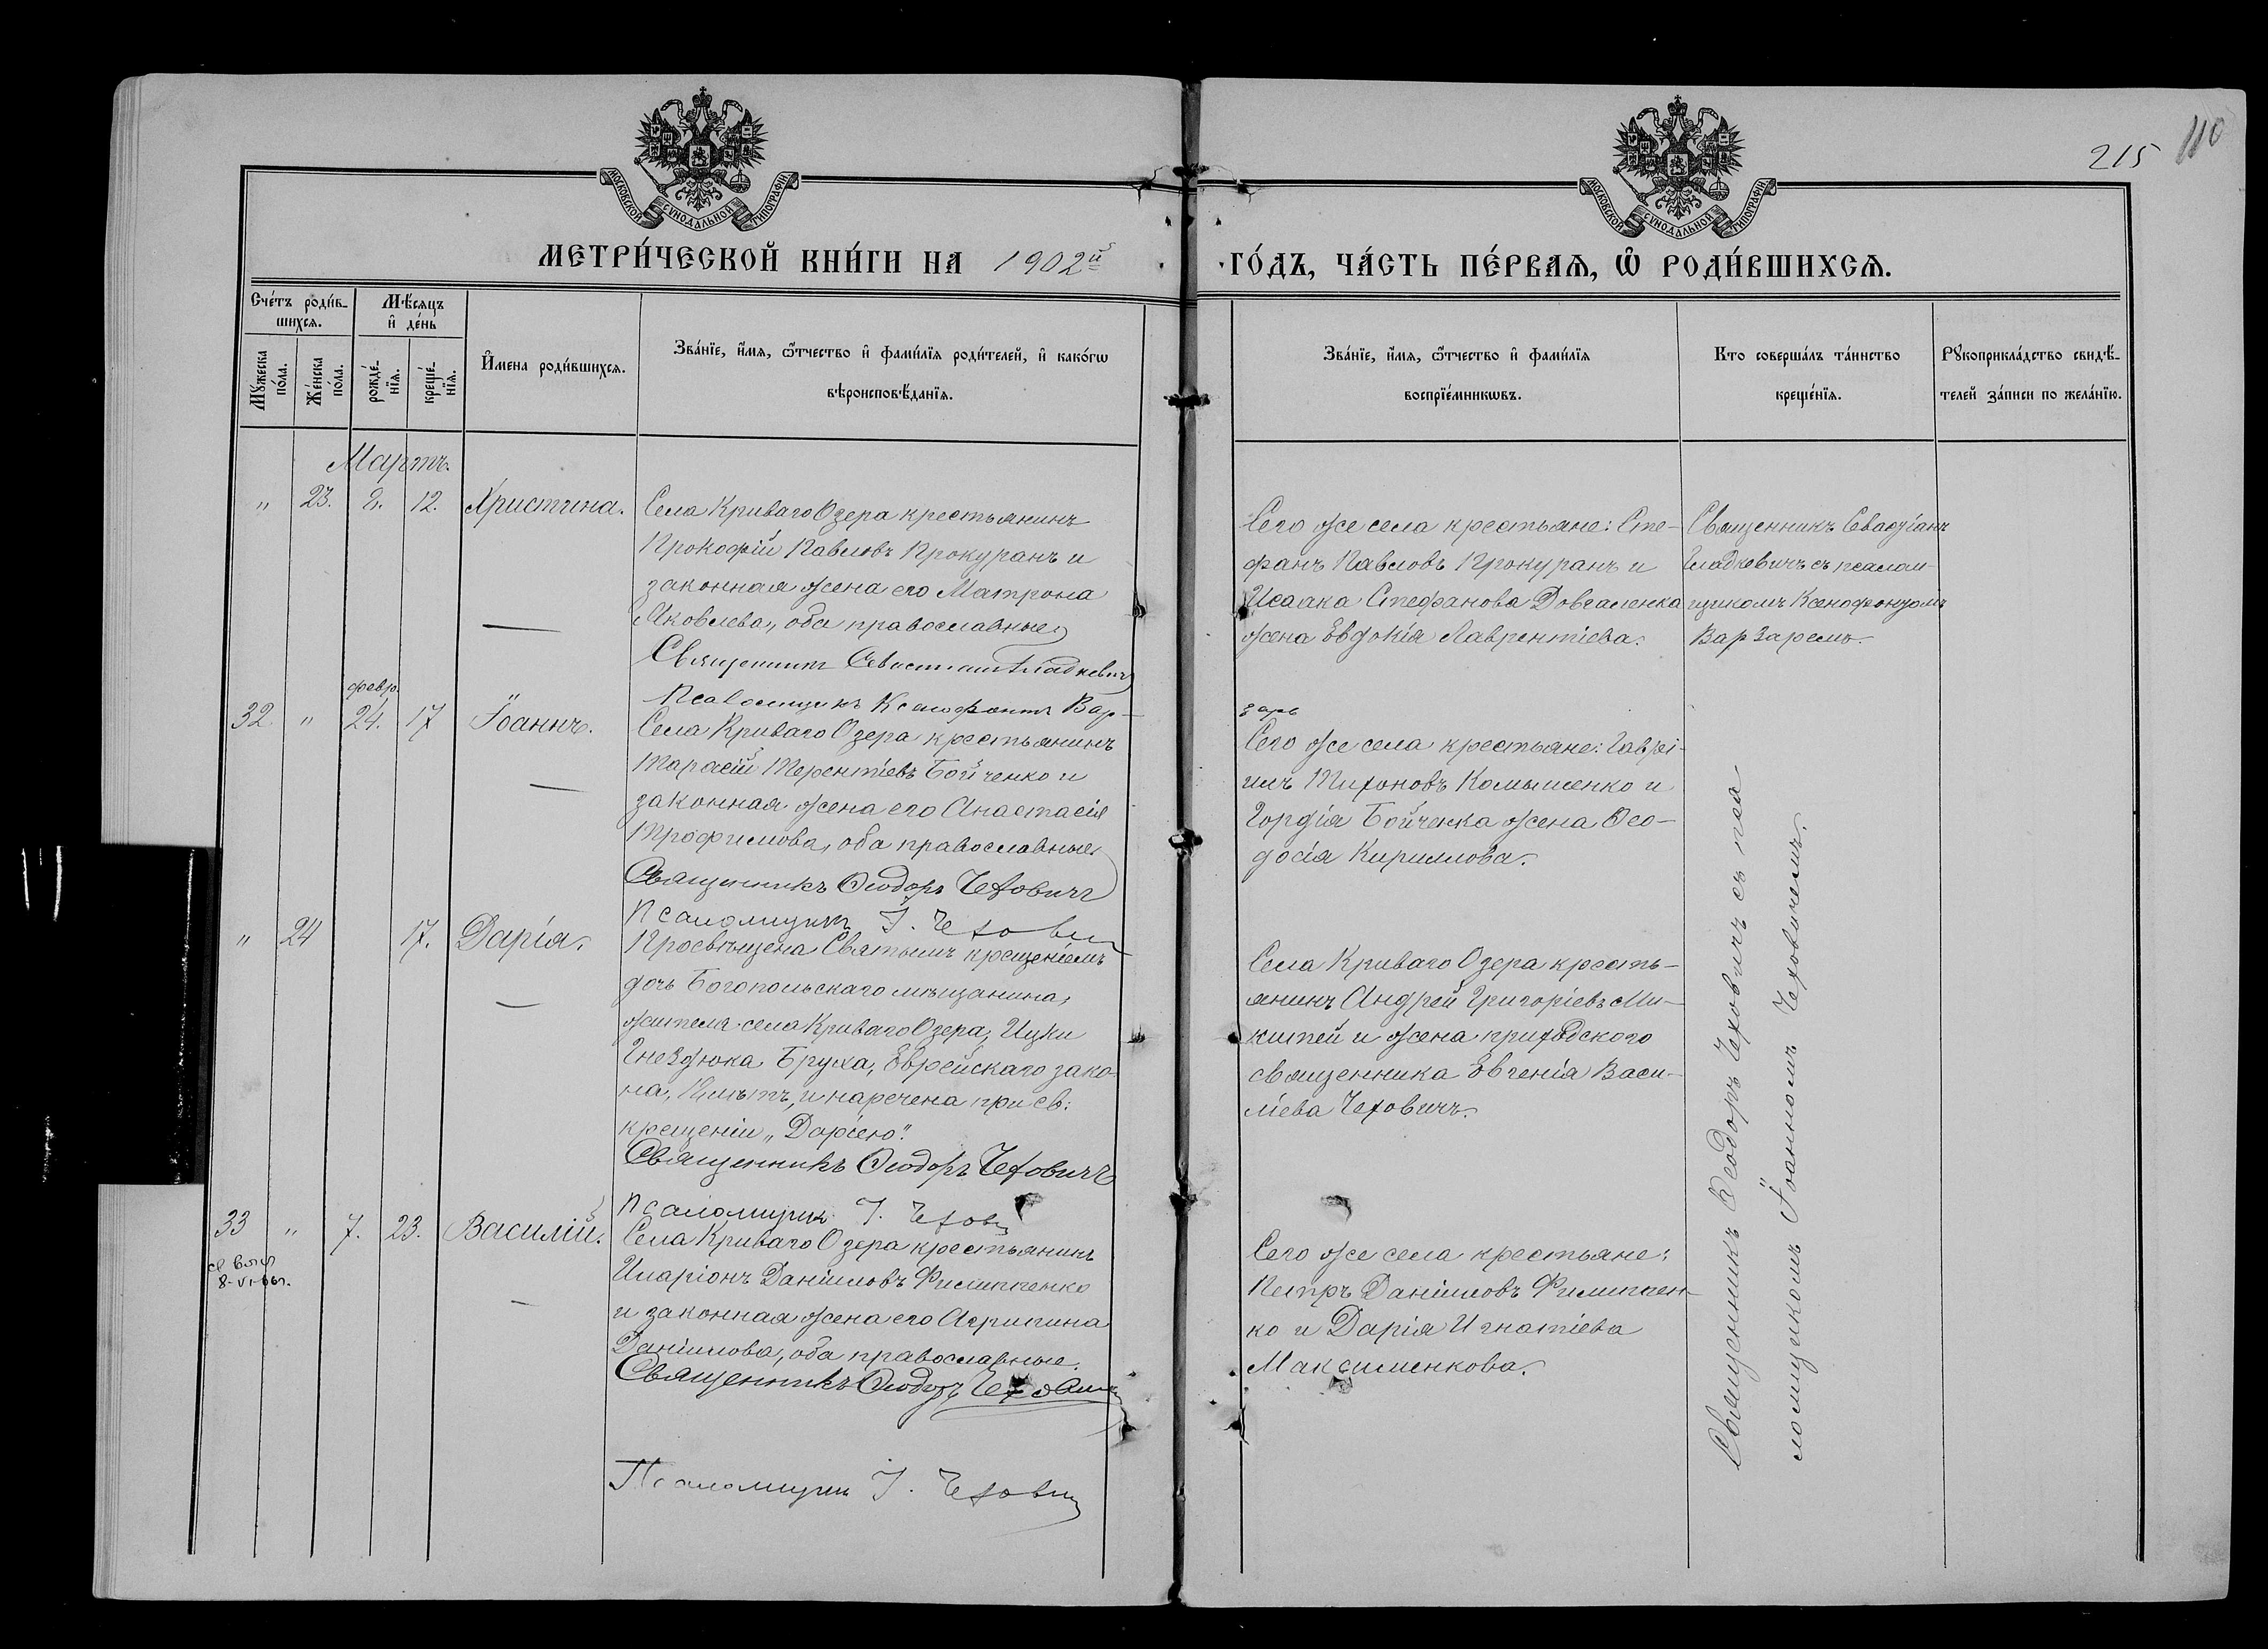 МОСКОВСКОЙ СѴНОДАЛЬНОЙ ТИПОГРАФІИ
МОСКОВСКОЙ СѴНОДАЛЬНОЙ ТИПОГРАФІИ
215 110
МЕТРИ́ЧЕСКОЙ КНИ́ГИ НА 1902й
ГО́ДЪ, ЧА́СТЬ ПЕ́РВАѦ, Ѡ РОДИ́ВШИХСѦ.
Сче́тъ роди́в-
шихсѧ.
Мꙋ́жеска по́ла.
Же́нска по́ла.
Мѣ́сѧцъ
и҆ де́нь
рожде́-
нїѧ.
креще́-
нїѧ.
И҆мена роди́вшихсѧ.
Зва́нїе, и҆́мѧ, ѻ҆́тчество и҆ фами́лїѧ роди́телей, и҆ како́гѡ
вѣроисповѣ́данїѧ.
Зва́нїе, и҆́мѧ, ѻ҆́тчество и҆ фами́лїѧ
воспрїе́мникѡвъ.
Кто соверша́лъ та́инство
креще́нїѧ.
Рꙋкоприкла́дство свидѣ́-
телей за́писи по жела́нїю.
Мартъ.
" 23. 8. 12. Христина.
Села Криваго Озера крестьянинъ
Прокофій Павловъ Прокуранъ и
законная жена его Матрона
Яковлева, оба православные.
Священникъ Севастіанъ Гладкевичъ
Псаломщикъ Ксенофонтъ Вар-
зарь
Сего же села крестьяне: Сте-
фанъ Павловъ Прокуранъ и
Исаака Стефанова Довгаленка
жена Евдокія Лаврентіева.
Священникъ Севастіанъ
Гладкевичъ съ псалом-
щикомъ Ксенофонтомъ
Варзаремъ.
февр.
32 " 24. 17 Іоаннъ.
Села Криваго Озера крестьянинъ
Тарасій Терентіевъ Бойченко и
законная жена его Анастасія
Трофимова, оба православные.
Священникъ Ѳеодоръ Чеховичъ
Псаломщикъ І. Чехович
Сего же села крестьяне: Гаврі-
илъ Тихоновъ Комышенко и
Гордія Бойченка жена Ѳео-
досія Кириллова.
" 24 17. Дарія.
Просвѣщена Святымъ крещеніемъ
дочь Богопольскаго мѣщанина,
жителя села Криваго Озера, Ицки
Гнездюка Бруха, Еврейскаго зако-
на, и наречена при св:
крещеніи „Даріею".
Священникъ Ѳеодоръ Чеховичъ
Псаломщикъ І. Чехович
Села Криваго Озера кресть-
янинъ Андрей Григоріевъ Ми-
китей и жена приходского
священника Евгенія Васи-
ліева Чеховичъ.
33 " 7. 23. Василій.
8-VI-
Села Криваго Озера крестьянинъ
Иларіонъ Даніиловъ Филиппенко
и законная жена его Агрипина
Даніилова, оба православные.
Священникъ Ѳеодоръ Чеховичъ
Псаломщикъ І. Чехович
Сего же села крестьяне:
Петръ Даніиловъ Филиппен-
ко и Дарія Игнатіева
Максименкова.
Священникъ Ѳеодоръ Чеховичъ съ пса-
ломщикомъ Іоанномъ Чеховичемъ.